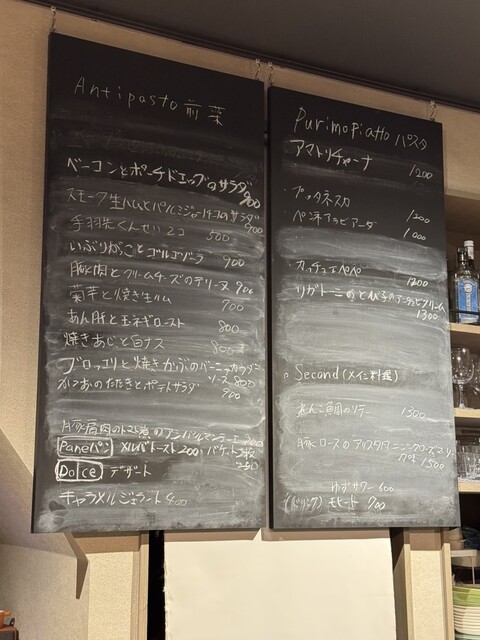 Antipasto 前菜
ベーコンとポーチドエッグのサラダ 900
スモーク生ハムとパルミジャーノチーズのサラダ 900
手羽先くんせい 2コ 500
いぶりがっことゴルゴンゾーラ 900
豚肉とクリームチーズのテリーヌ 900
菊芋と焼き生ハム 700
あん肝と玉ネギロースト 800
焼きあじと白ナス 800
ブロッコリと焼きかぶのバーニャカウダーソース 800
かつおのたたきとポテトサラダ 900
豚肩肉のトマト煮の
Pane パン メルバトースト 200 バケット 2枚 250
Dolce デザート
キャラメルジェラート 400
PurimoPiatto パスタ
アマトリチャーナ 1200
プッタネスカ 1200
ペンネアラビアータ 1000
カッチョエペペ 1200
リガトーニのとびこの クリーム 1300
Second (メイン料理)
れんこ鯛のソテー 1500
豚ロースの ローズマリー 1500
ゆずサワー 600
(ドリンク) モヒート 700